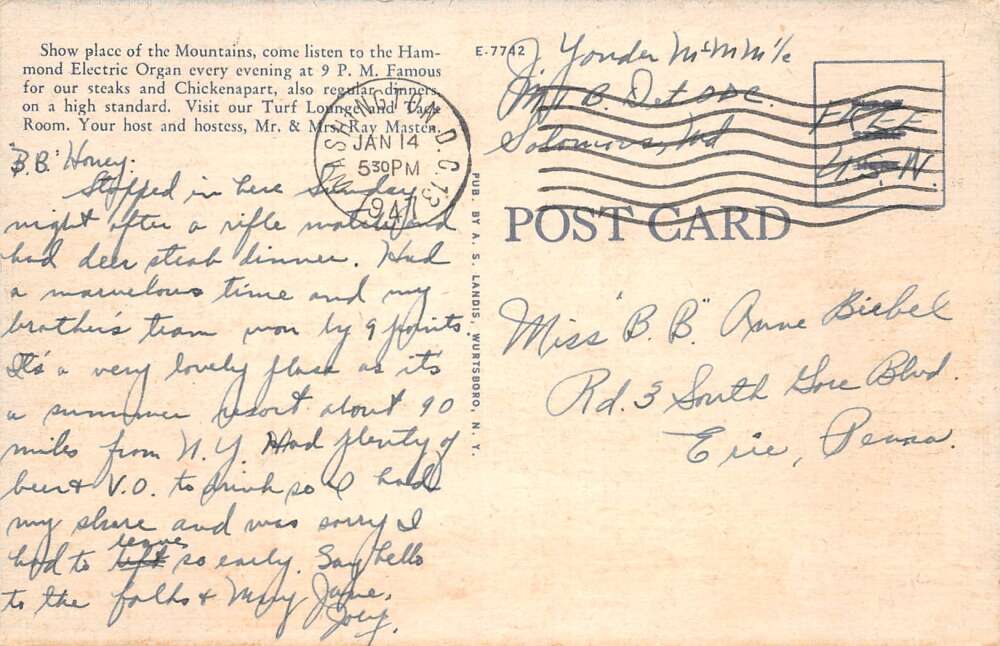 Show place of the Mountains, come listen to the Ham-
mond Electric Organ every evening at 9 P. M. Famous
for our steaks and Chickenapart, also regular dinners
on a high standard. Visit our Turf Lounge and
Room. Your host and hostess, Mr. & Mrs. Ray Masten.
E-7742
J. Yonder
B. Det
Solomons, Md
FREE
U.S.N.
WASHINGTON, D.C. 13
JAN 14
530PM
1947
POST CARD
"B.B." Honey:
Stopped in here Sunday
night after a rifle match and
had deer steak dinner. Had
a marvelous time and my
brother's team won by 9 points.
It's a very lovely place as it's
a summer resort about 90
miles from N.Y. Had plenty of
beer & V.O. to drink so I had
my share and was sorry I
had to leave so early. Say hello
to the folks & Mary Jane.
Joey.
PUB. BY A. S. LANDIS, WURTSBORO, N. Y.
Miss "B.B." Anne Biebel
Rd. 3 South Gore Blvd.
Erie, Penna.